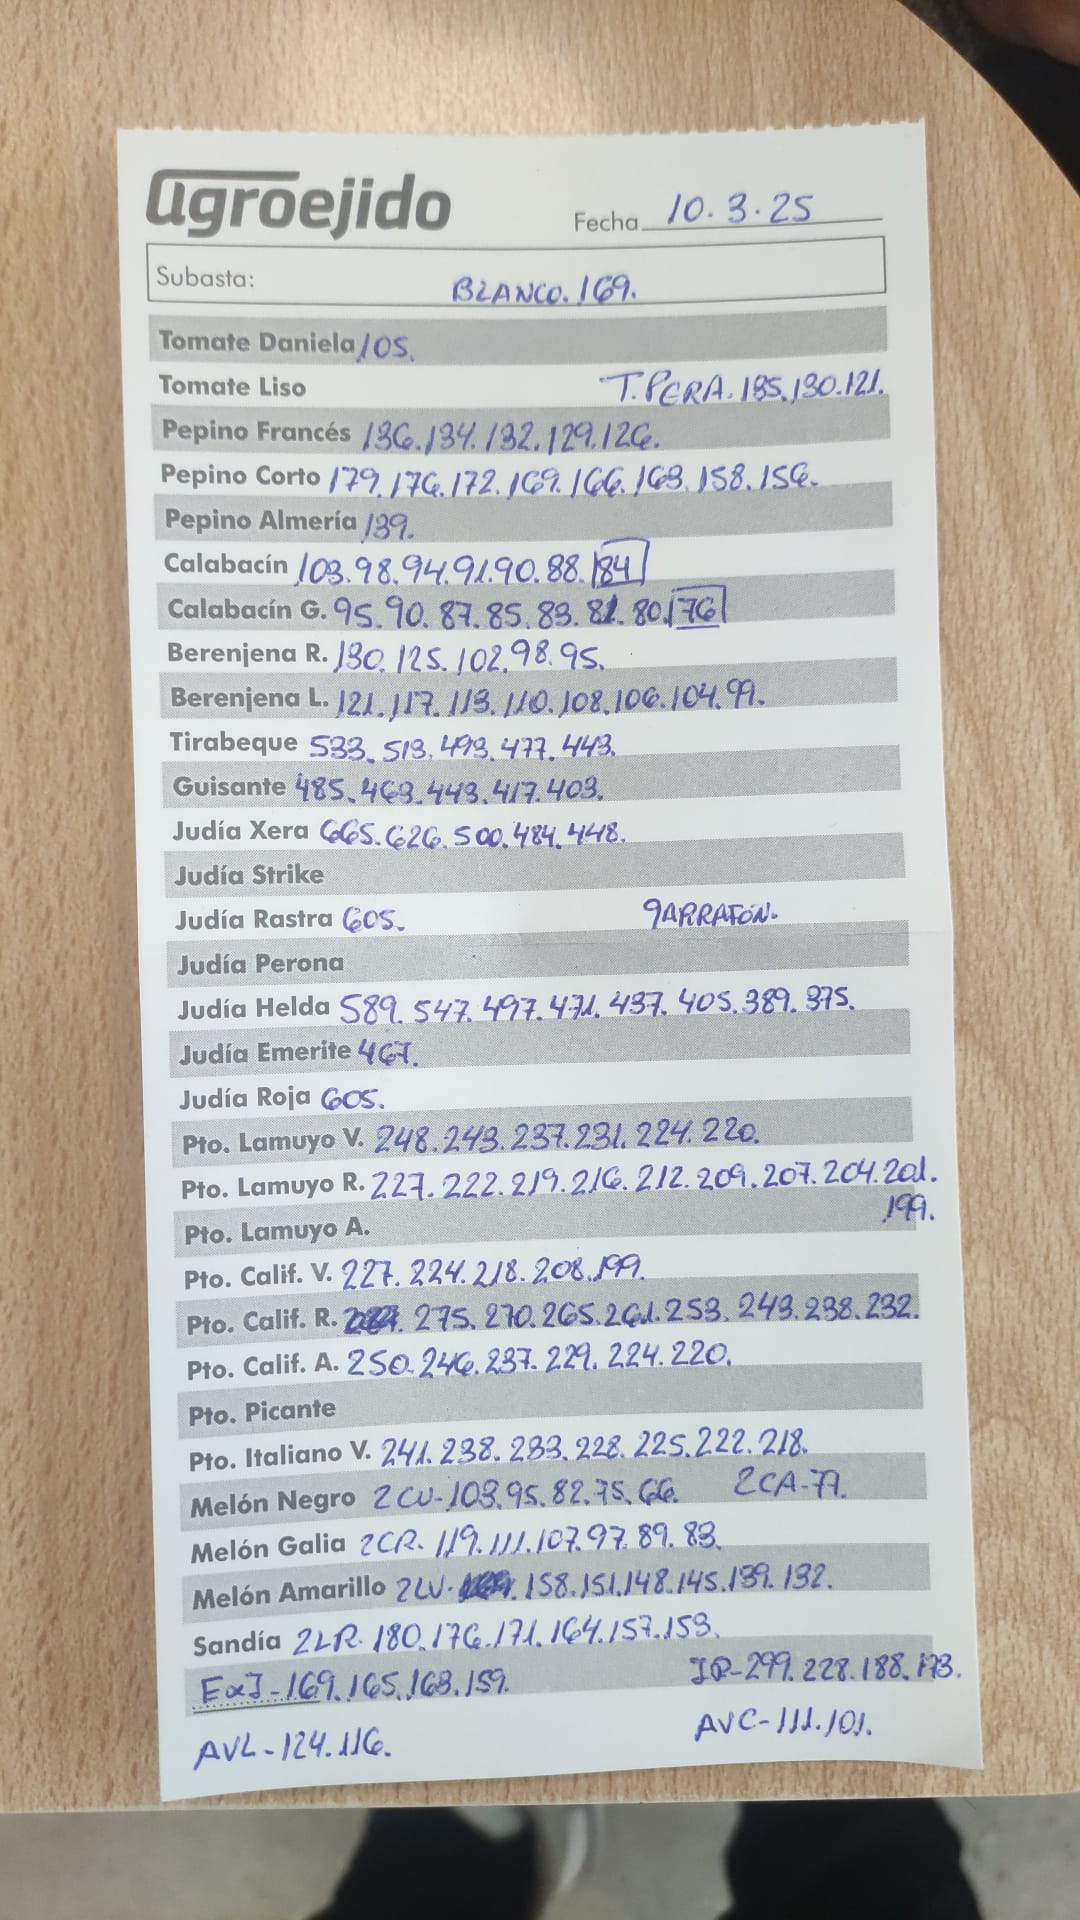 agroejido Fecha 10.3.25
Subasta: BLANCO.169.
Tomate Daniela 105.
Tomate Liso T.PERA.185.130.121.
Pepino Francés 136.134.132.129.126.
Pepino Corto 179.176.172.169.166.163.158.156.
Pepino Almería 139.
Calabacín 103.98.94.91.90.88.84
Calabacín G. 95.90.87.85.83.82.80.76
Berenjena R. 130.125.102.98.95.
Berenjena L. 121.117.113.110.108.106.104.99.
Tirabeque 533.513.493.477.443.
Guisante 485.463.443.417.403.
Judía Xera 665.626.500.484.448.
Judía Strike
Judía Rastra 605. GARRAFÓN.
Judía Perona
Judía Helda 589.547.497.471.437.405.389.375.
Judía Emerite 467.
Judía Roja 605.
Pto. Lamuyo V. 248.243.237.231.224.220.
Pto. Lamuyo R. 227.222.219.216.212.209.207.204.201.
199.
Pto. Lamuyo A.
Pto. Calif. V. 227.224.218.208.199.
Pto. Calif. R. 275.270.265.261.253.243.238.232.
Pto. Calif. A. 250.246.237.229.224.220.
Pto. Picante
Pto. Italiano V. 241.238.233.228.225.222.218.
Melón Negro 2CU-103.95.82.75.66. 2CA-77.
Melón Galia 2CR.119.111.107.97.89.83.
Melón Amarillo 2LV-158.151.148.145.139.132.
Sandía 2LR.180.176.171.164.157.153.
-169.165.163.159. -299.228.188.173.
AVL-124.116. AVC-111.101.